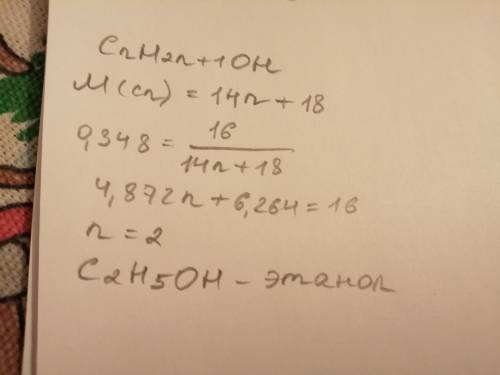 CnH2n+1OH
M(cn) = 14n + 18
0,348 = 16 / 14n+18
4,872n + 6,264 = 16
n = 2
C2H5OH - этанол